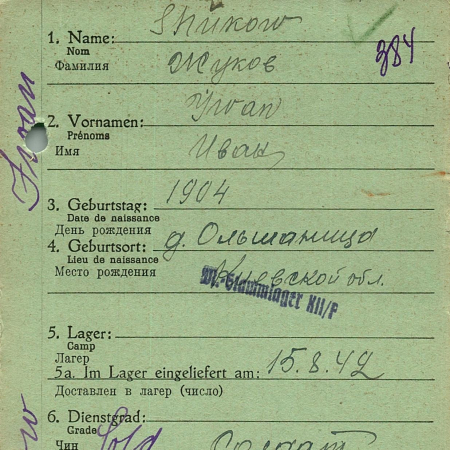 Shukow
1. Name:
Nom
Фамилия
Жуков
384
Ywan
2. Vornamen:
Prénoms
Имя
Иван
Iwan
3. Geburtstag: 1904
Date de naissance
День рождения
4. Geburtsort: д. Ольшаница
Lieu de naissance
Место рождения Киевской обл.
M.-Stammlager XII/F
5. Lager:
Camp
Лагерь
5a. Im Lager eingeliefert am: 15.8.42
Доставлен в лагерь (число)
6. Dienstgrad:
Grade
Чин Sold Солдат